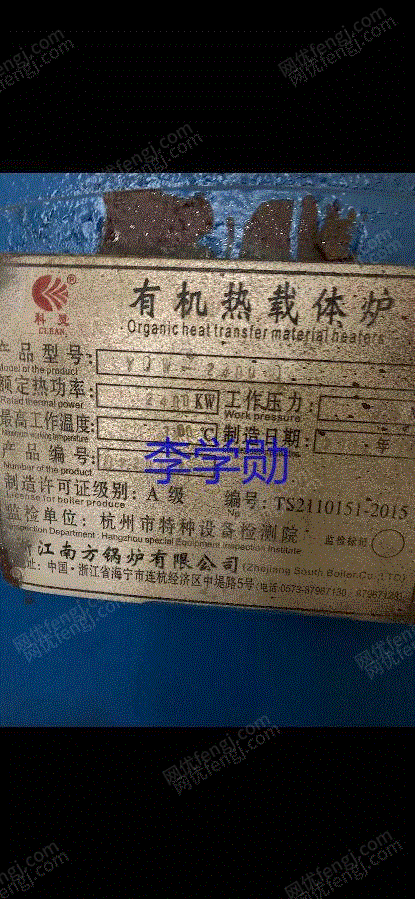 网优fengj.com
网优fengj.com
科曼
CLEAN
有机热载体炉
Organic heat transfer material heaters
产品型号:
Model of the product
额定热功率: 2400KW 工作压力:
Rated thermal power Work pressure
最高工作温度: ℃ 制造日期: 年
产品编号:
Number of the product
李学勋
制造许可证级别: A级 编号: TS2110151-2015
License for boiler produce №
监检单位: 杭州市特种设备检测院 监检标记
Inspection Department: Hangzhou special Equipment Inspection Institute
浙江南方锅炉有限公司 (Zhejiang South Boiler Co.,LTD)
址: 中国·浙江省海宁市连杭经济区中堤路5号 电话: 0573-87987130
网优fengj.com
网优fengj.com
网优fengj.com